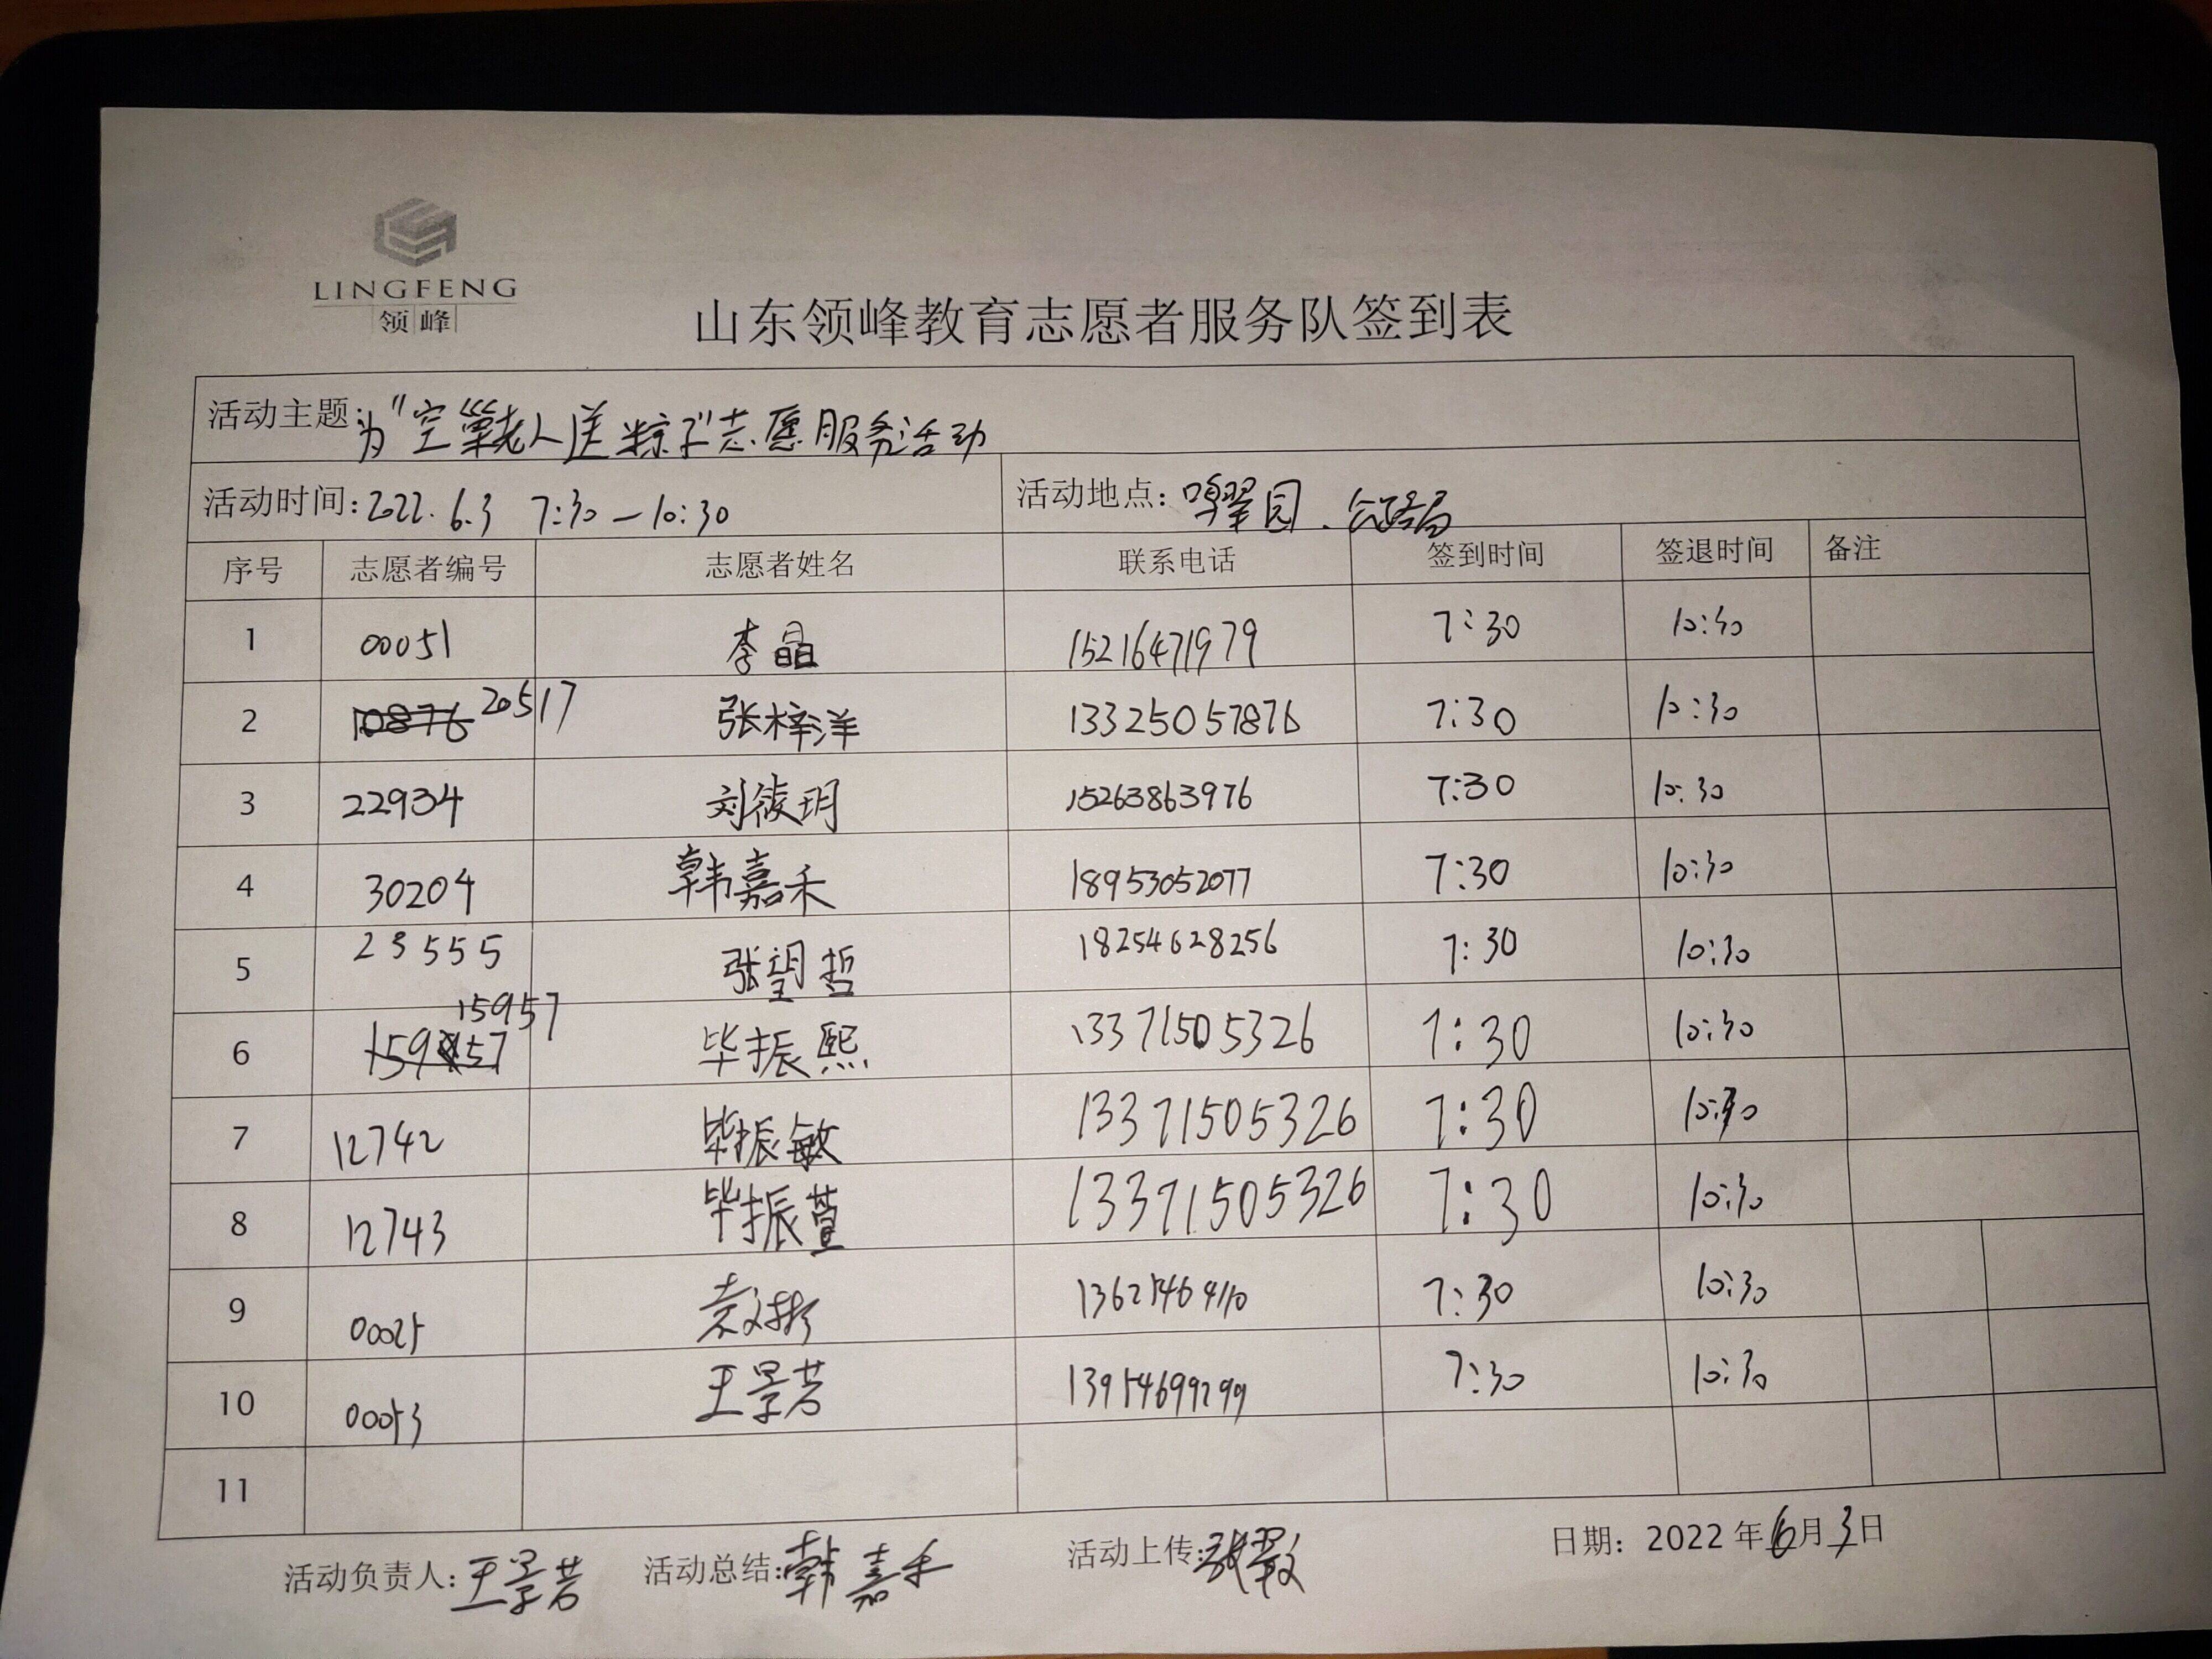 LINGFENG
领峰
山东领峰教育志愿者服务队签到表
活动主题:为"空巢老人送粽子"志愿服务活动
活动时间:2022.6.3 7:30—10:30 活动地点:鸣翠园、公路局
序号 志愿者编号 志愿者姓名 联系电话 签到时间 签退时间 备注
1 00051 李晶 15216471979 7:30 10:30
2 10876 20517 张梓洋 13325057876 7:30 10:30
3 22934 刘筱玥 15263863976 7:30 10:30
4 30204 韩嘉禾 18953052077 7:30 10:30
5 23555 张望哲 18254628256 7:30 10:30
6 15957 毕振熙 13371505326 7:30 10:30
7 12742 毕振敏 13371505326 7:30 10:30
8 12743 毕振萱 13371505326 7:30 10:30
9 00025 袁文彬 7:30 10:30
10 00053 王景芳 13954699299 7:30 10:30
11
活动负责人:王景芳 活动总结:韩嘉禾 活动上传: 日期:2022年6月3日